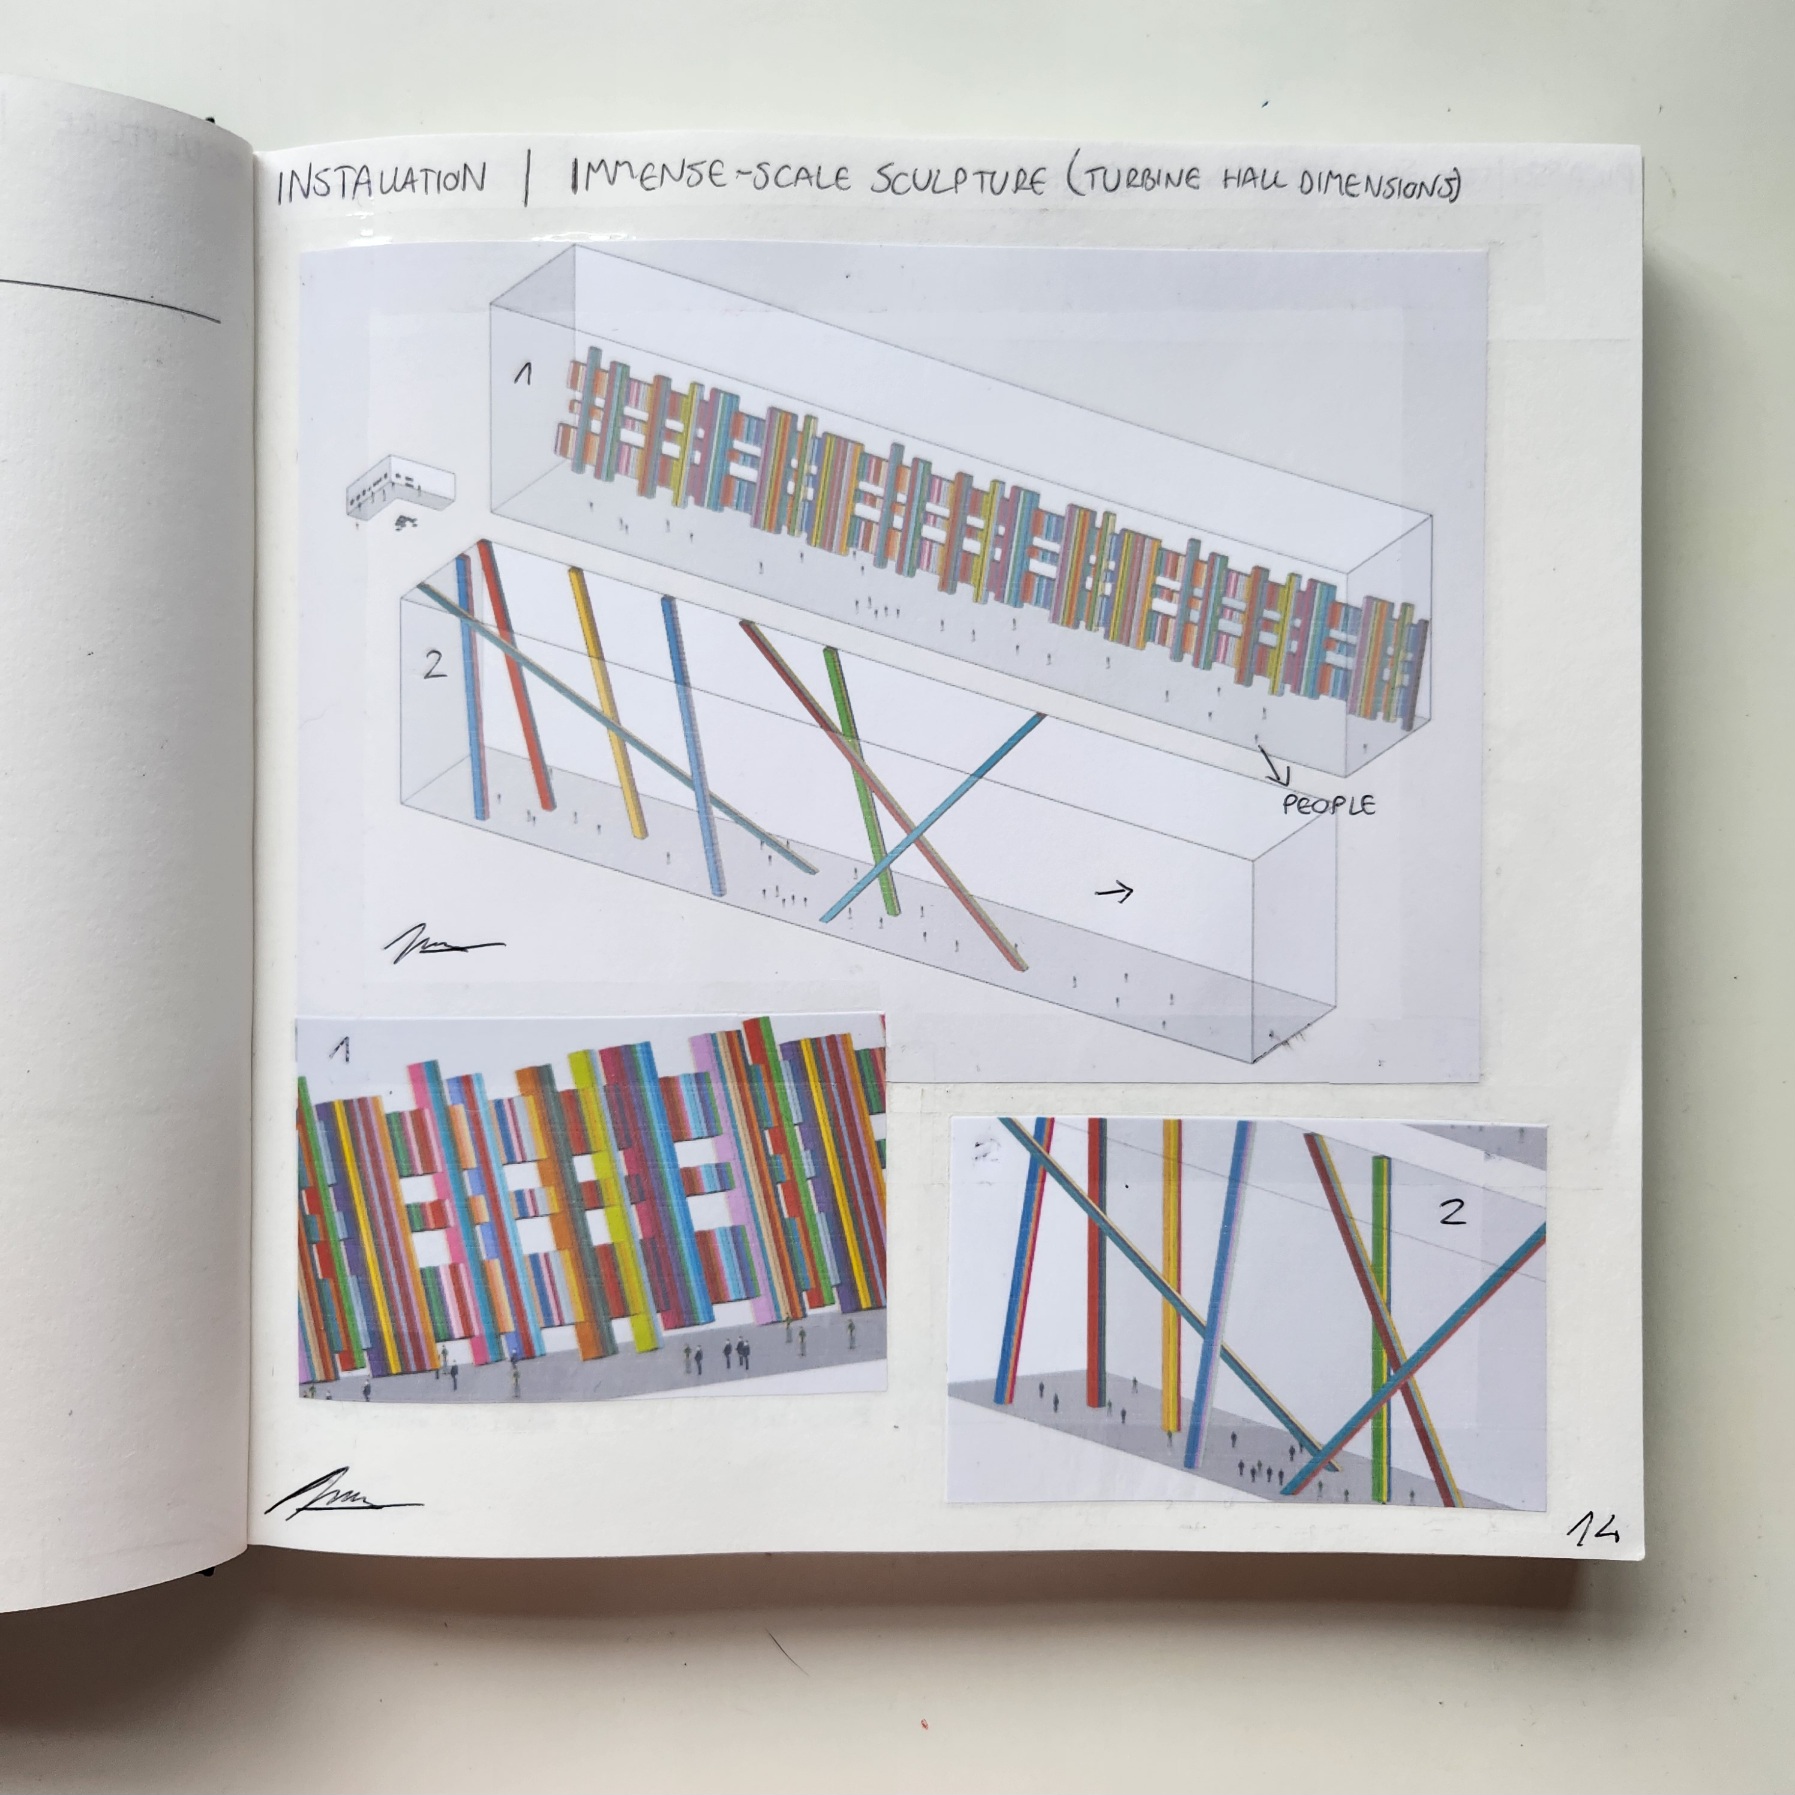 INSTALLATION | IMMENSE-SCALE SCULPTURE (TURBINE HALL DIMENSIONS)
1
2
PEOPLE
1
2
14